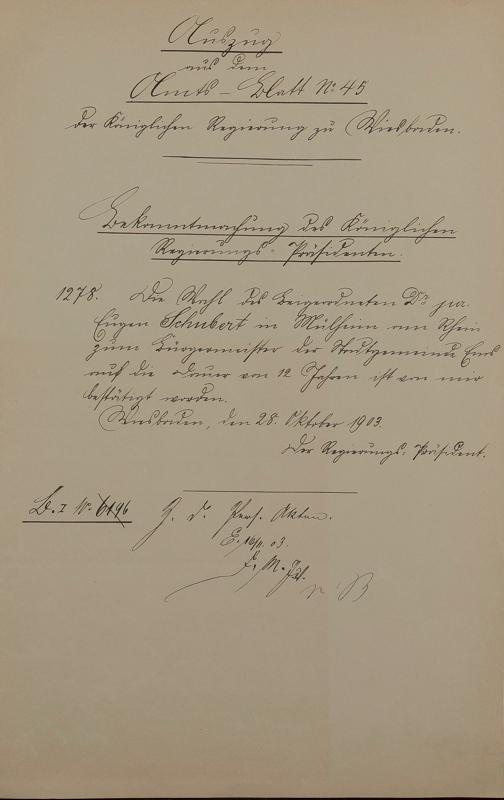 Auszug
aus dem
Amts-Blatt No. 45
der Königlichen Regierung zu Wiesbaden.
Bekanntmachung des Königlichen
Regierungs-Präsidenten.
1278. Die Wahl des Beigeordneten Dr. jur.
Eugen Schubert in Mülheim am Rhein
zum Bürgermeister der Stadtgemeinde Ems
auf die Dauer von 12 Jahren ist von mir
bestätigt worden.
Wiesbaden, den 28. Oktober 1903.
Der Regierungs-Präsident.
B. I No. 6196
Z. d. Pers. Akten.
E. 16/11. 03.
D. M.